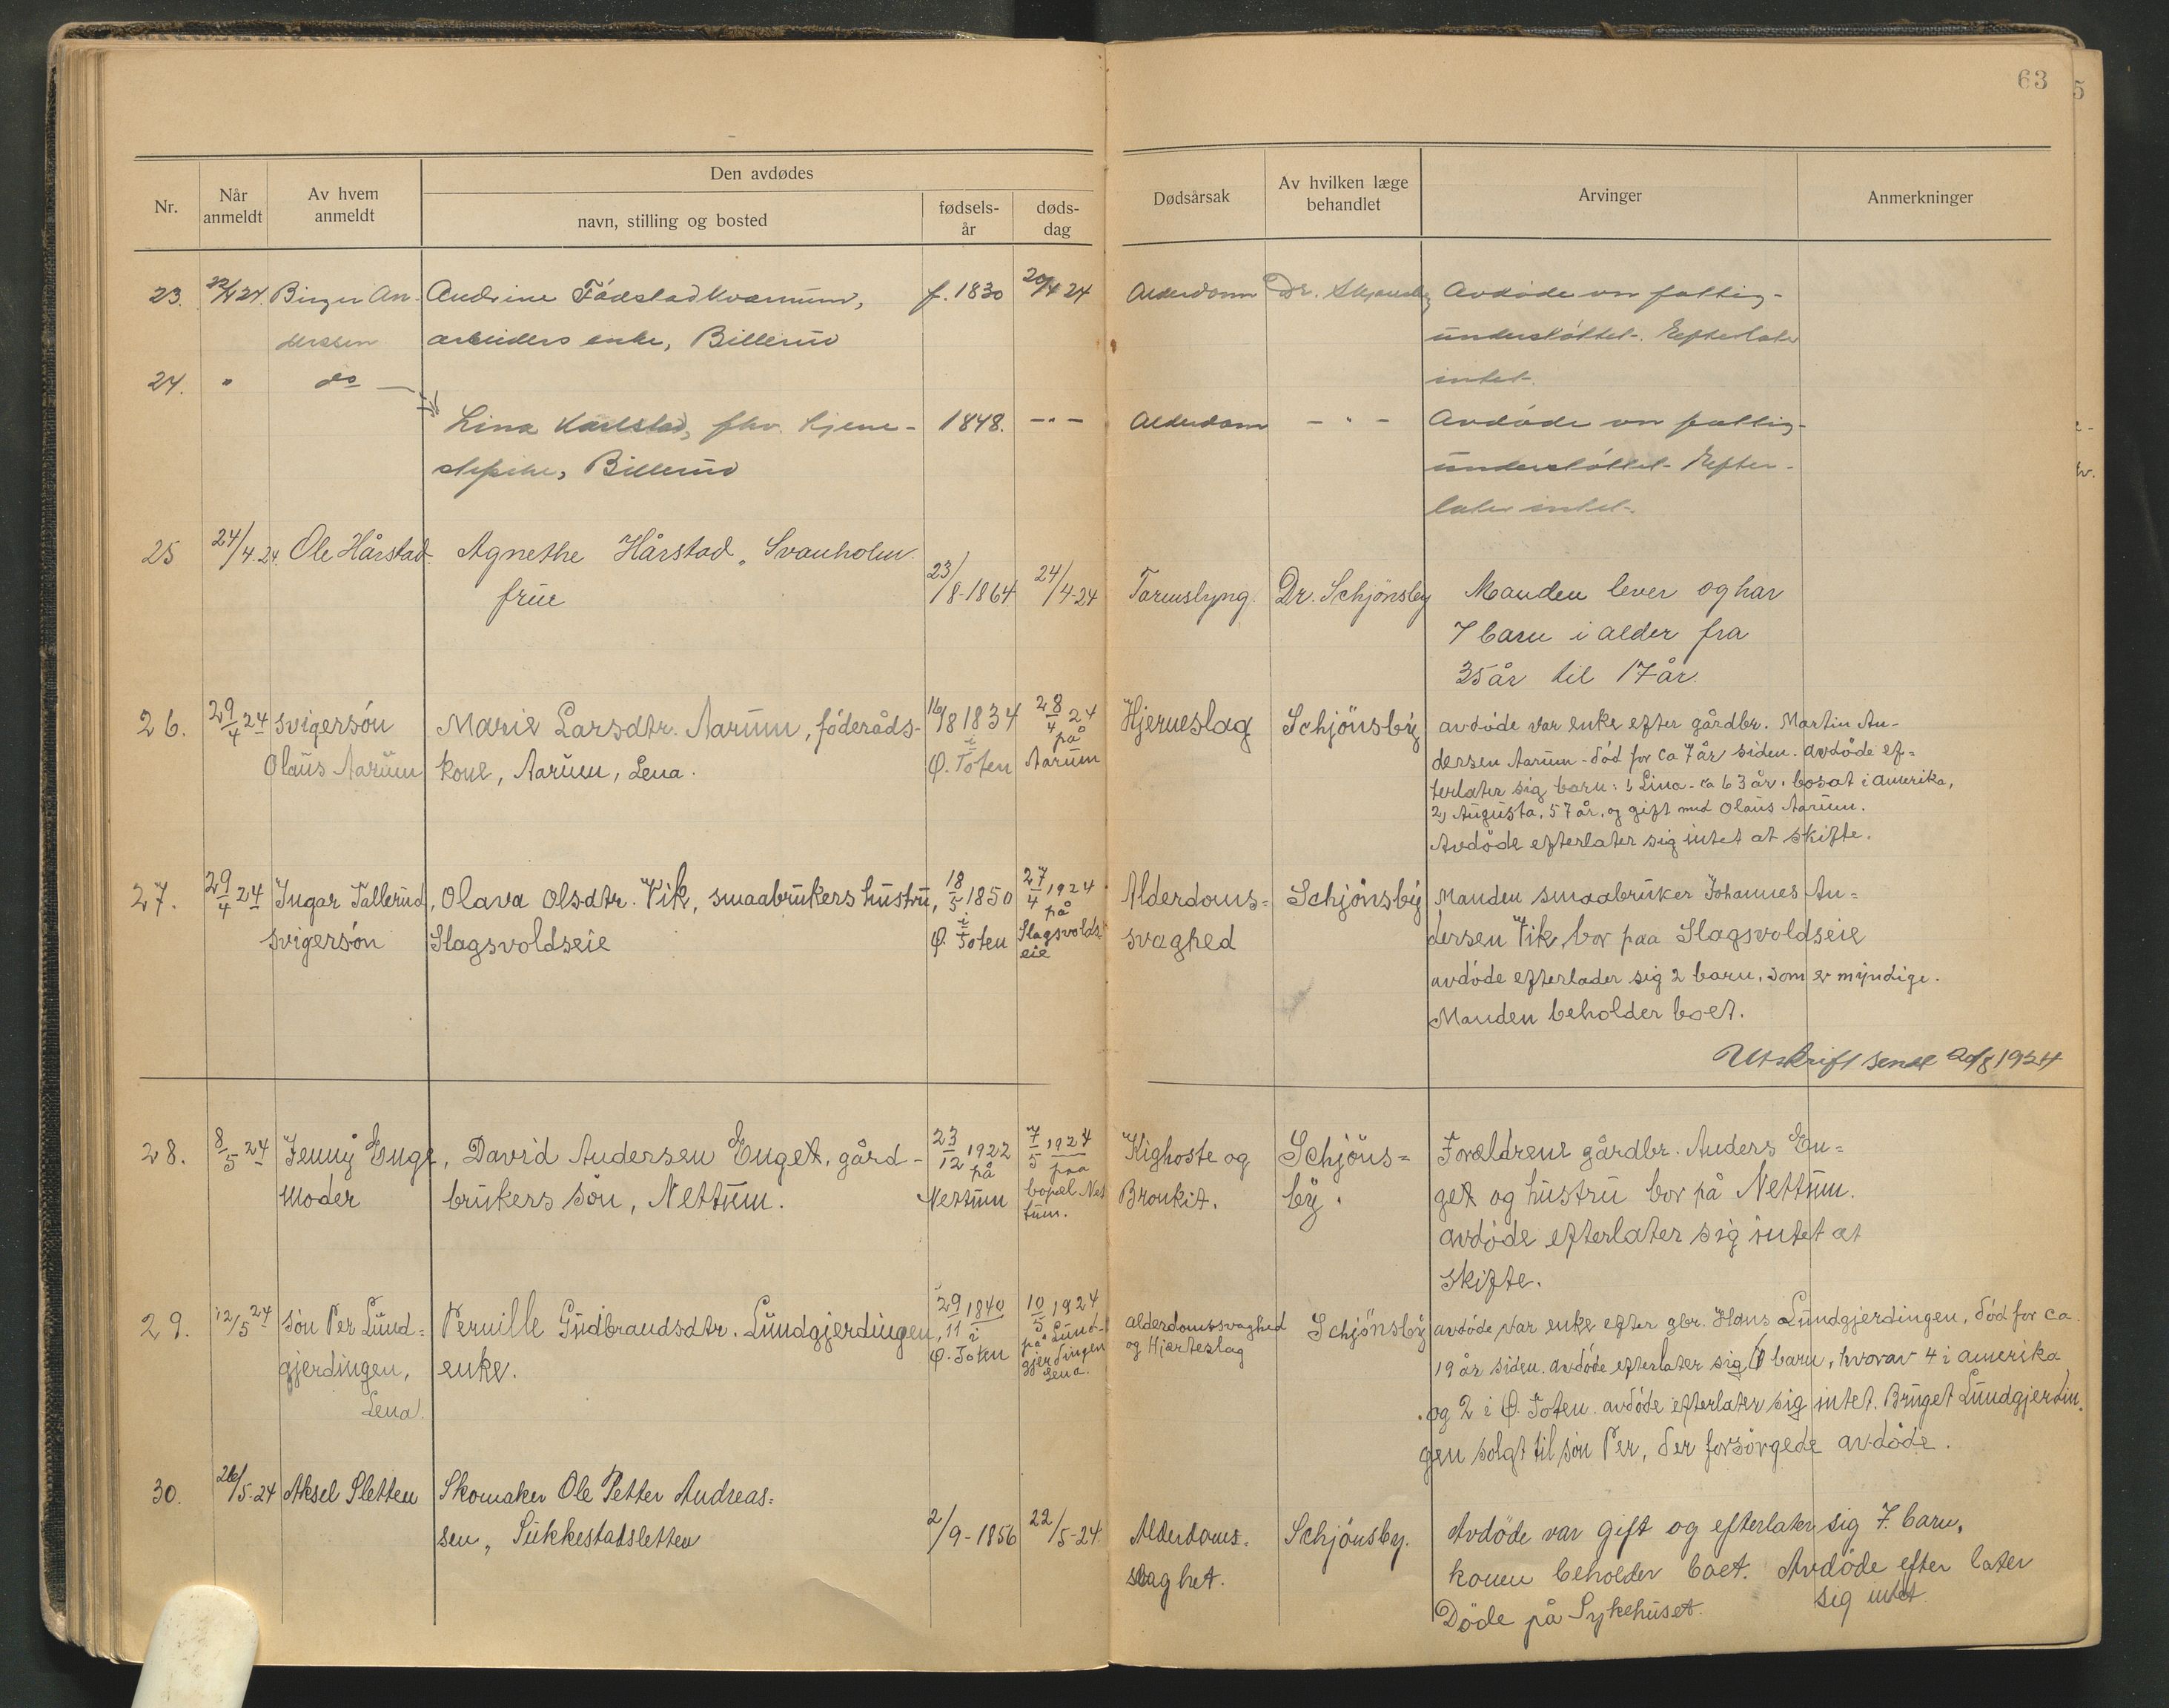 63
Den avdødes
Nr.
Når anmeldt
Av hvem anmeldt
navn, stilling og bosted
fødsels-år
døds-dag
Dødsårsak
Av hvilken læge behandlet
Arvinger
Anmerkninger
23. 22/4 24. Birger An- Andrine Fådstadkvarnum, f. 1830 20/4 24 Alderdom Dr. Skjønsby Avdøde var fattig-
derssen arbeiders enke, Billerud understøttet. Efterlater
24. " do intet.
Lina Karlstad, fhv. tjene- 1848. -"- Alderdom - " - Avdøde var fattig-
stepike, Billerud understøttet. Efter-
later intet.
25 24/4.24. Ole Hårstad. Agnethe Hårstad, Svanholm.
frue 23/8-1864 24/4-24 Tarmslyng. Dr. Schjönsby Manden lever og har
7 barn i alder fra
35 år til 17 år.
26. 29/4 24 svigersøn Marie Larsdtr. Aarum, föderåds- 16/8 1834 28/4 24 Hjerneslag Schjönsby avdöde var enke efter gårdbr. Martin An-
Olaus Aarum kone, Aarum, Lena. i Ø. Toten på Aarum dersen Aarum - död for ca 7 år siden. avdöde ef=
terlater sig barn: 1, Lina - ca 63 år. bosat i amerika,
2, Augusta, 57 år, og gift med Olaus Aarum.
Avdöde efterlater sig intet at skifte.
27. 29/4 24 Ingar Tallerud, Olava Olsdtr. Vik, smaabrukers hustru, 18/5 1850 27/4 1924 Alderdoms= Schjönsby Manden smaabruker Johannes An=
svigersön Slagsvoldseie i Ø. Toten på Slagsvolds eie svaghed dersen Vik, bor paa Slagsvoldseie
avdöde efterlader sig 2 barn, som er myndige.
Manden beholder boet.
Utskrift sendt 20/8 1924
28. 8/5 24 Jenny Enge, David Andersen Enget, gård- 23/12 1922 7/5 1924 Kighoste og Schjöns= Foreldrene gårdbr. Anders En=
Moder brukers sön, Nettum. på Nettum paa bopæl Net tum. Bronkit. by. get og hustru bor på Nettum.
avdöde efterlater sig intet at
skifte.
29. 12/5 24 sön Per Lund= Pernille Gudbrandsdtr. Lundgjerdingen, 29/11 1840 10/5 1924 alderdomssvaghed Schjönsby avdöde var enke efter gbr. Hans Lundgjerdingen, död for ca.
gjerdingen, enke. i Ø. Toten på Lund- gjerdingen Lena. og Hjerteslag 19 år siden. avdöde efterlater sig 6 barn, hvorav 4 i amerika
Lena. og 2 i Ø. Toten. avdöde efterlater sig intet. Bruget Lundgjerdin.
gen solgt til sön Per, der forsörgede avdöde.
30. 26/5-24 Aksel Sletten Skomaker Ole Petter Andreas=
sen, Sukkestadsletten 2/9-1856 22/5-24. Alderdoms= Schjönsby. Avdöde var gift og efterlater sig 7. barn,
svaghet. konen beholder boet. Avdöde efter later
Döde på Sykehuset. sig intet